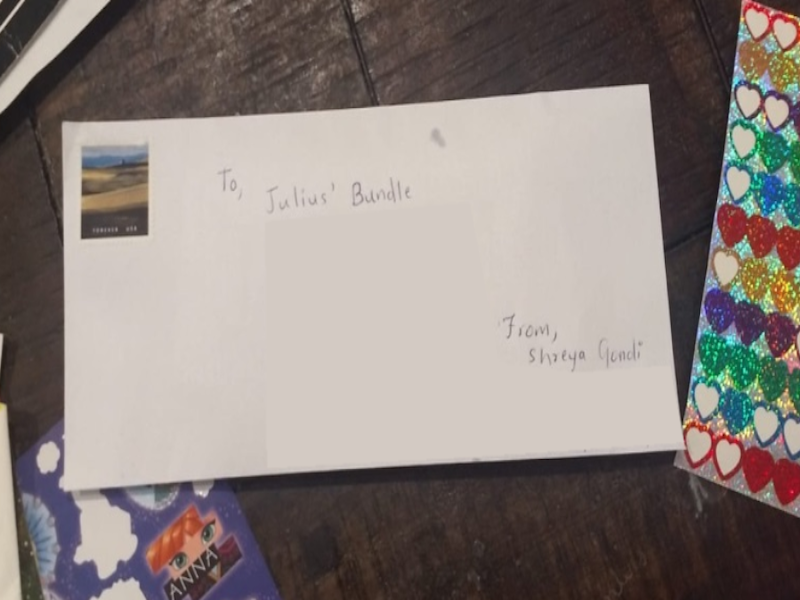 FOREVER USA
To,
Julius' Bundle
From,
Shreya Gondi
ANNA